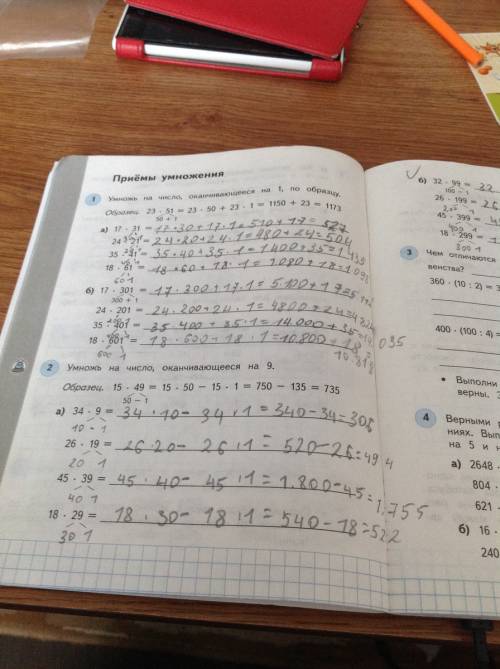 Приёмы умножения
1 Умножь на число, оканчивающееся на 1, по образцу.
Образец. 23 · 51 = 23 · 50 + 23 · 1 = 1150 + 23 = 1173
50 + 1
а) 17 · 31 = 17·30+17·1=510+17=527
24 · 21 = 24·20+24·1=480+24=504
35 · 41 = 35·40+35·1=1400+35=1435
18 · 61 = 18·60+18·1=1080+18=1098
60 1
б) 17 · 301 = 17·300+17·1=5.100+17=5.117
300 + 1
24 · 201 = 24·200+24·1=4800+24=4824
35 · 401 = 35·400+35·1=14.000+35=14.035
18 · 601 = 18·600+18·1=10.800+18=
600 1
10.818
2 Умножь на число, оканчивающееся на 9.
Образец. 15 · 49 = 15 · 50 − 15 · 1 = 750 − 135 = 735
50 − 1
а) 34 · 9 = 34·10−34·1=340−34=306
10 − 1
26 · 19 = 26·20−26·1=520−26=494
20 1
45 · 39 = 45·40−45·1=1.800−45=1.755
40 1
18 · 29 = 18·30−18·1=540−18=522
30 1
б) 32 · 99 = 32
100 − 1
26 · 199 = 26
200
45 · 399 =
400 1
18 · 299 =
300 1
3 Чем отличаются
венства?
360 · (10 : 2) = 3
400 · (100 : 4) =
• Выполни
верны.
4 Верными
ниях. Вып
на 5 и н
а) 2648
804 ·
621 ·
б) 16 ·
240